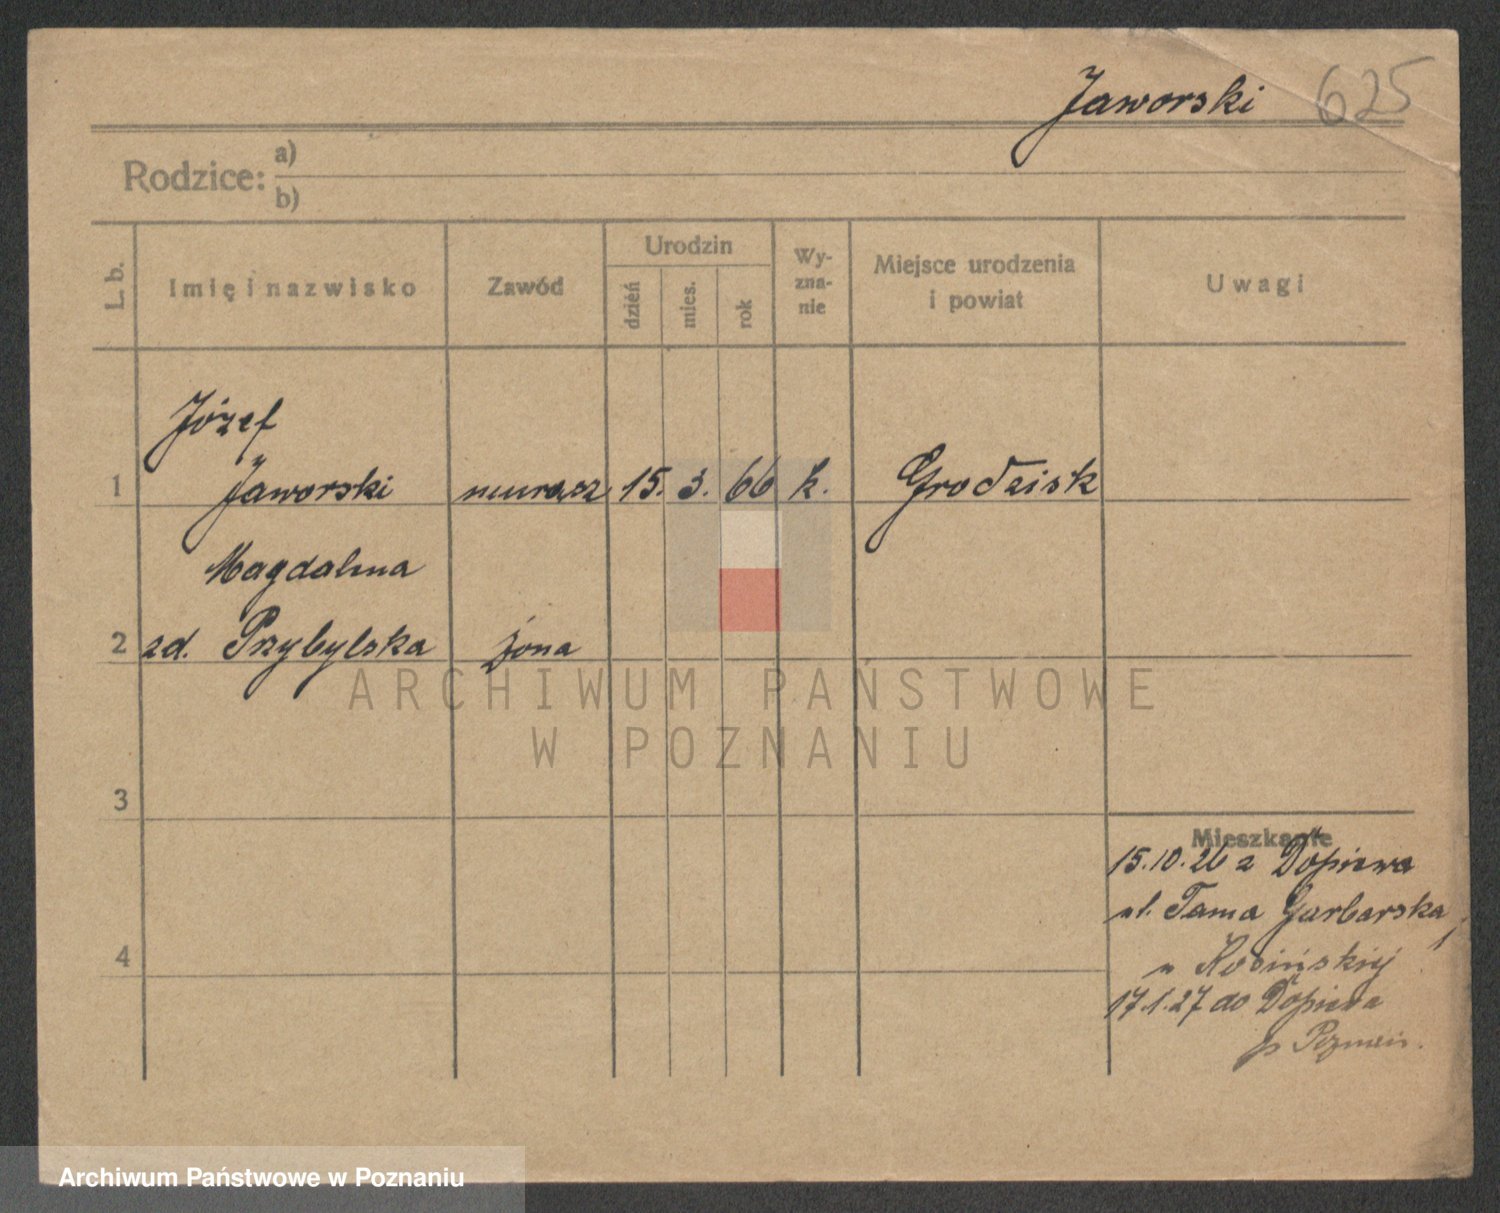 Jaworski 625
Rodzice: a)
b)
L. b.
Imię i nazwisko
Zawód
Urodzin
dzień
mies.
rok
Wy-
zna-
nie
Miejsce urodzenia
i powiat
Uwagi
Józef
1 Jaworski murarz 15. 3. 66 k. Grodzisk
Magdalena
2 zd. Przybylska żona
ARCHIWUM PAŃSTWOWE
W POZNANIU
3
Mieszkanie
15.10.26 z Dopiewa
ul. Tama Garbarska
4
u
17.1.27 do Dopiewa
p Poznań.
Archiwum Państwowe w Poznaniu